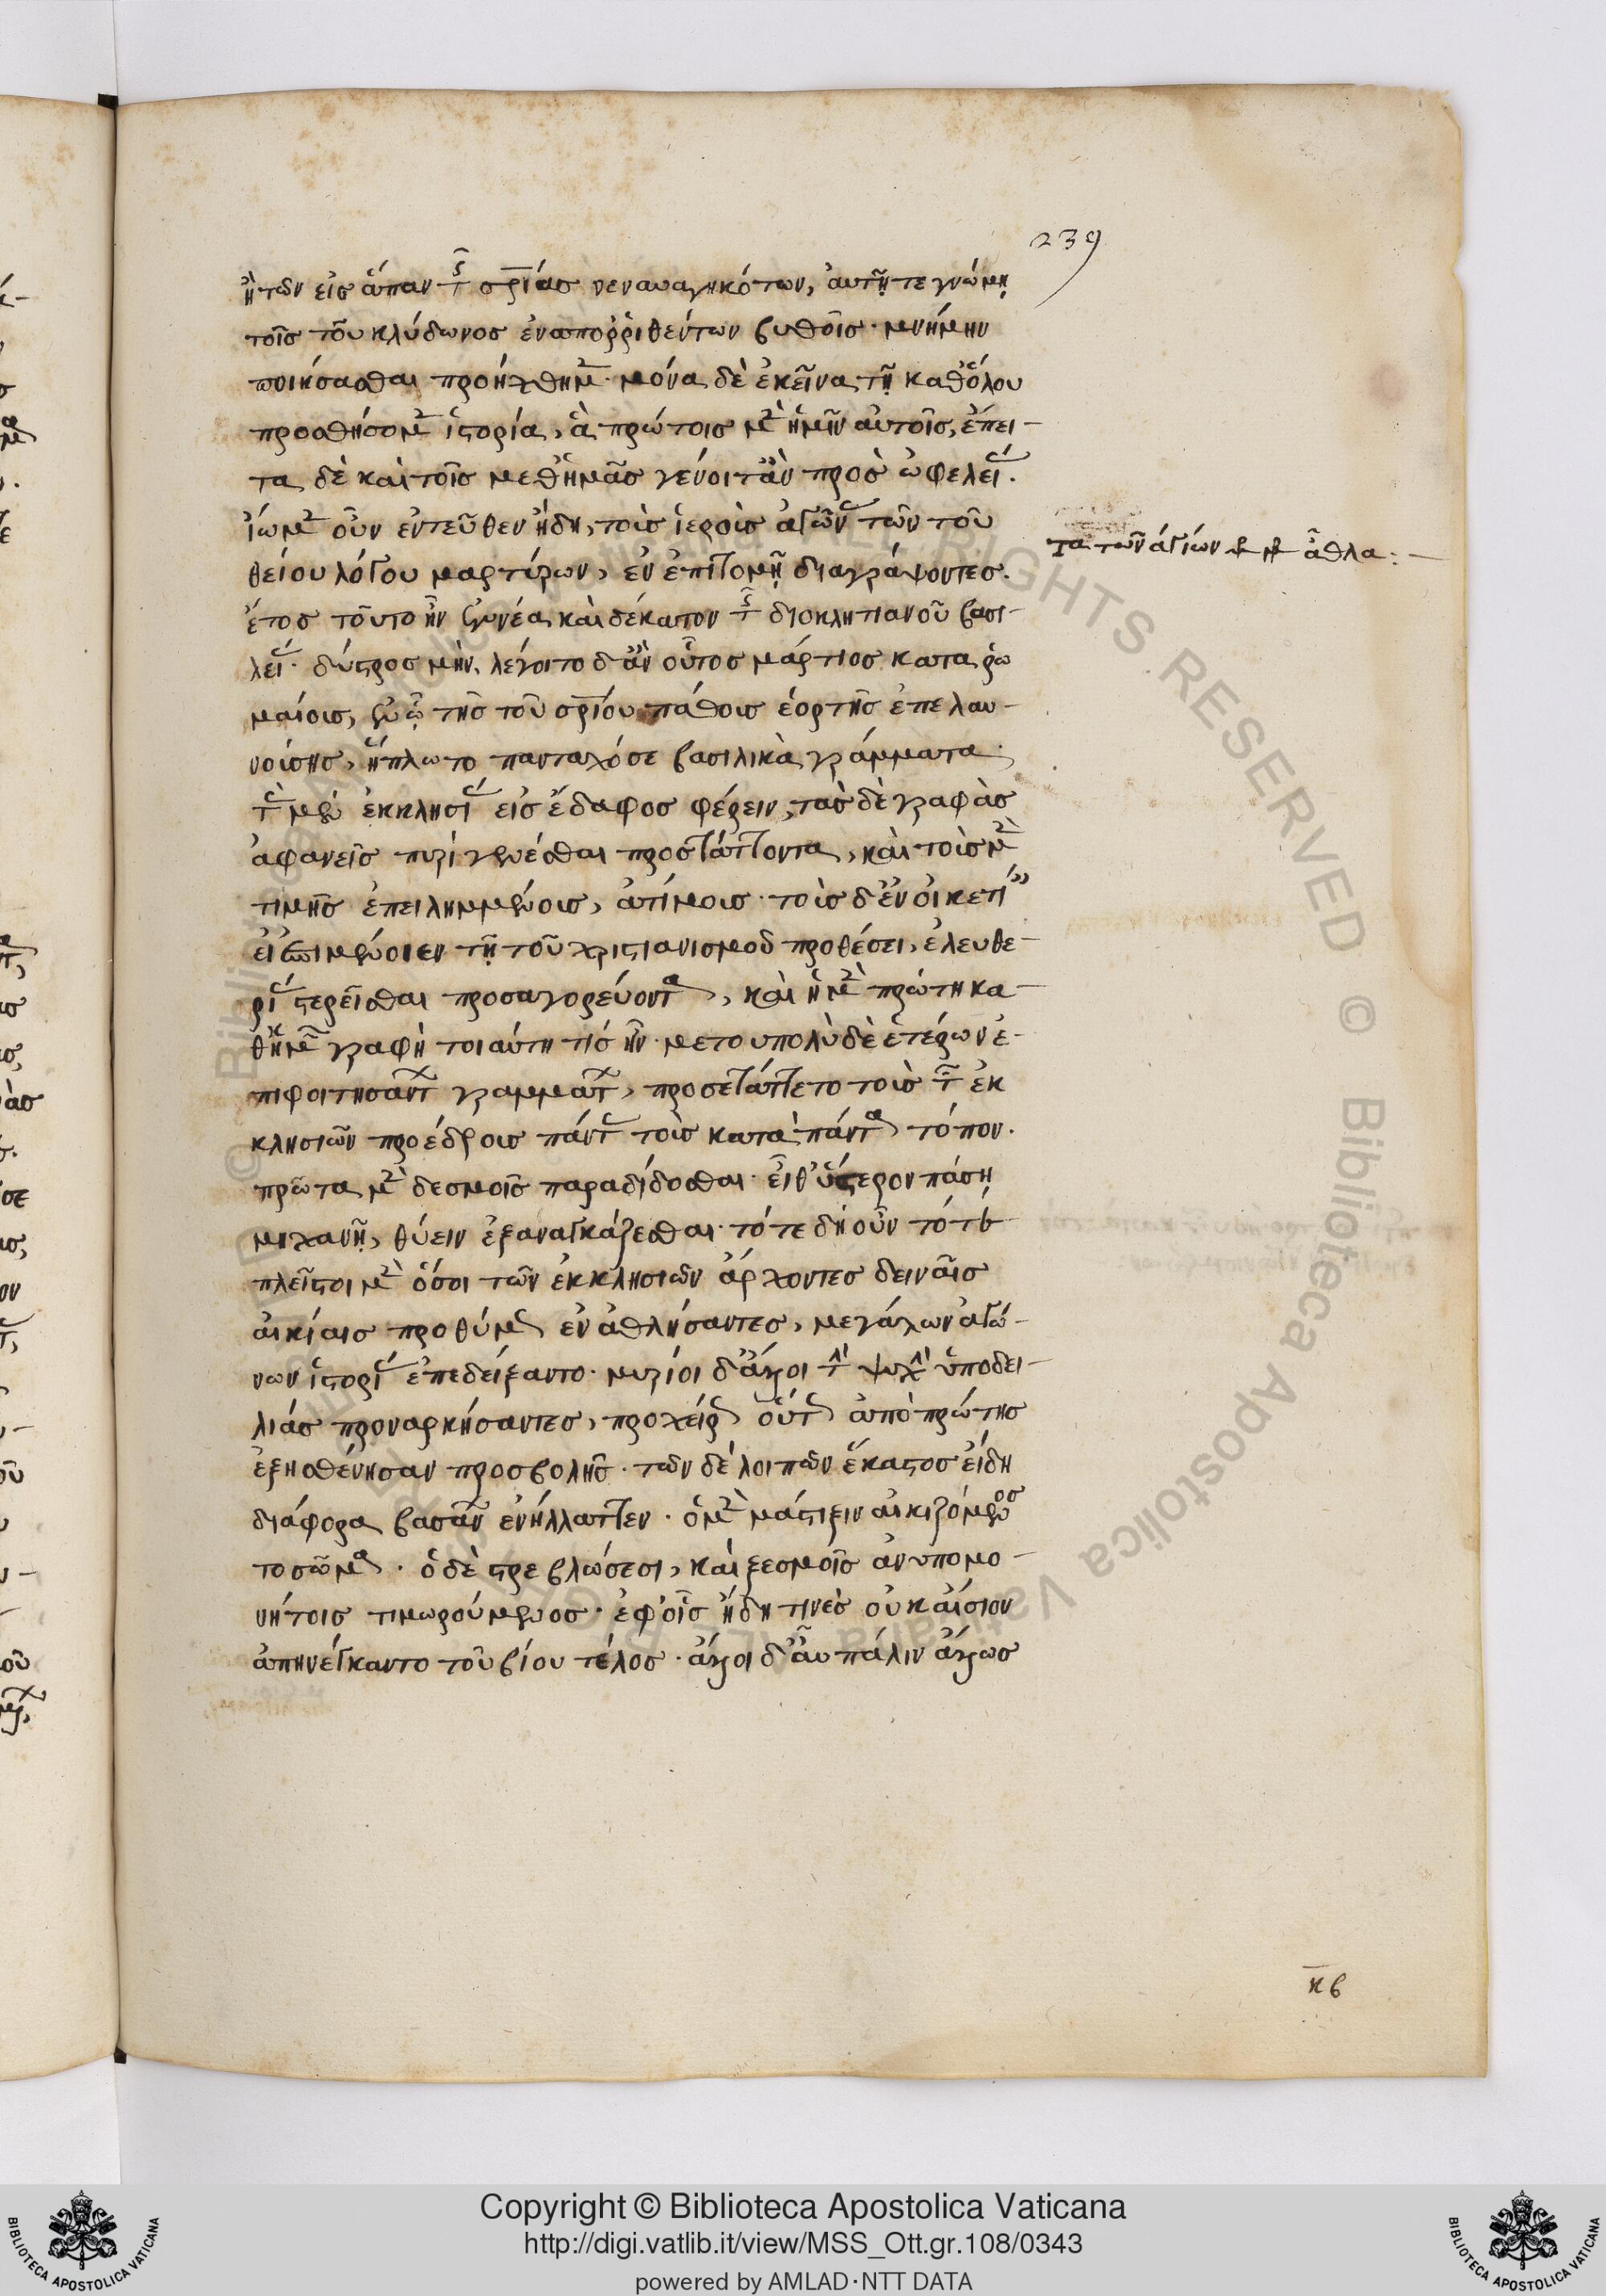 239
ἢ τῶν εἰς ἅπαν τ͂ς σρ̅ίας νεναυαγηκότων, αὐτῆ τε γνώμη
τοῖς τοῦ κλύδωνος ἐναπορριφέντων βυθοῖς· μνήμην
ποιήσασθαι προήχθημ̅· μόνα δὲ ἐκεῖνα τῆ καθόλου
προσθήσομ̅ ἱστορία, ἃ πρώτοις μ̅ ἡμῖν αὐτοῖς, ἔπει-
τα δὲ καὶ τοῖς μεθ' ἡμᾶς γένοιτ' ἂν πρὸς ὠφελεί̅.
ἴωμ̅ οὖν ἐντεῦθεν ἤδη, τοὺς ἱεροὺς ἀγῶν̅ τῶν τοῦ
θείου λόγου μαρτύρων, ἐν ἐπιτομῆ διαγράψοντες.
ἔτος τοῦτο ἦν ἐννέα καὶ δέκατον τ͂ς διοκλητιανοῦ βασι-
λεί̅· δύστρος μὴν, λέγοιτο δ' ἂν οὗτος μάρτιος κατὰ ῥω
μαίους, ἐν ᾧ τῆς τοῦ σρ̅ίου πάθους ἑορτῆς ἐπελαυ-
νούσης, ἥπλωτο πανταχόσε βασιλικὰ γράμματα·
τ̀ μὲν ἐκκλησί̅ εἰς ἔδαφος φέρειν, τὰς δὲ γραφὰς
ἀφανεῖς πυρὶ γενέσθαι προστάττοντα, καὶ τοὺς μ̅
τιμῆς ἐπειλημμένους, ἀτίμους· τοὺς δ' ἐν οἰκετί̅
εἰ ἐπιμένοιεν τῆ τοῦ χριστιανισμοῦ προθέσει, ἐλευθε-
ρί̅ στερεῖσθαι προσαγορεύοντα, καὶ ἡ μ̅ πρώτη κα-
θ' ἡμ̅ γραφὴ τοιαύτη τίς ἦν· μετ' οὐ πολὺ δὲ ἑτέρων ἐ-
πιφοιτησάντ̅ γραμμάτ̅, προσετάττετο τοὺς τ͂ ἐκ
κλησιῶν προέδρους πάντ̅ τοὺς κατὰ πάντα τόπον.
πρῶτα μ̅ δεσμοῖς παραδίδοσθαι· εἶθ' ὕστερον πάση
μηχανῆ, θύειν ἐξαναγκάζεσθαι· τότε δὴ οὖν τότε
πλεῖστοι μ̅ ὅσοι τῶν ἐκκλησιῶν ἄρχοντες δειναῖς
αἰκίαις προθύμως ἐναθλήσαντες, μεγάλων ἀγώ-
νων ἱστορί̅ ἐπεδείξαντο· μυρίοι δ' ἄλλοι τ̀ ψυχ̀ ὑπὸ δει-
λίας προναρκήσαντες, προχείρως οὕτως ἀπὸ πρώτης
ἐξησθένησαν προσβολῆς· τῶν δὲ λοιπῶν ἕκαστος εἴδη
διάφορα βασάν̅ ἐνήλλαττεν· ὁ μ̅ μάστιξιν αἰκιζόμενος
τὸ σῶμα· ὁ δὲ στρεβλώσεσι, καὶ ξεσμοῖς ἀνυπομο-
νήτοις τιμωρούμενος· ἐφ' οἷς ἤδη τινὲς οὐκ αἴσιον
ἀπηνέγκαντο τοῦ βίου τέλος· ἄλλοι δ' αὖ πάλιν ἄλλως
τὰ τῶν ἁγίων ἆθλα:-
κ̅β
Copyright © Biblioteca Apostolica Vaticana
http://digi.vatlib.it/view/MSS_Ott.gr.108/0343
powered by AMLAD·NTT DATA
BIBLIOTECA APOSTOLICA VATICANA
BIBLIOTECA APOSTOLICA VATICANA